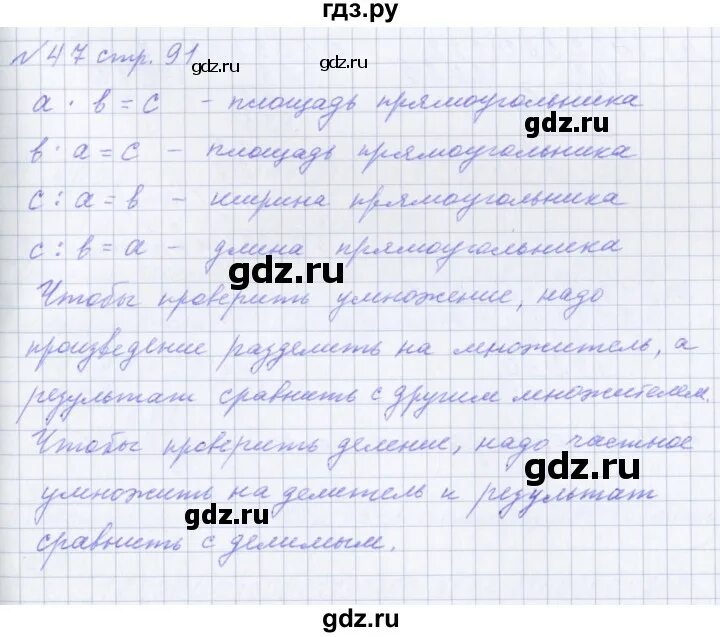 гдз.ру
№ 47 стр. 91
gdz.ru
gdz.ru
a · b = c – площадь прямоугольника
gdz.ru
b · a = c – площадь прямоугольника
c : a = b – ширина прямоугольника
c : b = a – длина прямоугольника
gdz.ru
Чтобы проверить умножение, надо
произведение разделить на множитель, а
результат сравнить с другим множителем.
Чтобы проверить деление, надо частное
gdz.ru
умножить на делитель и результат
gdz.ru
сравнить с делимым.
gdz.ru